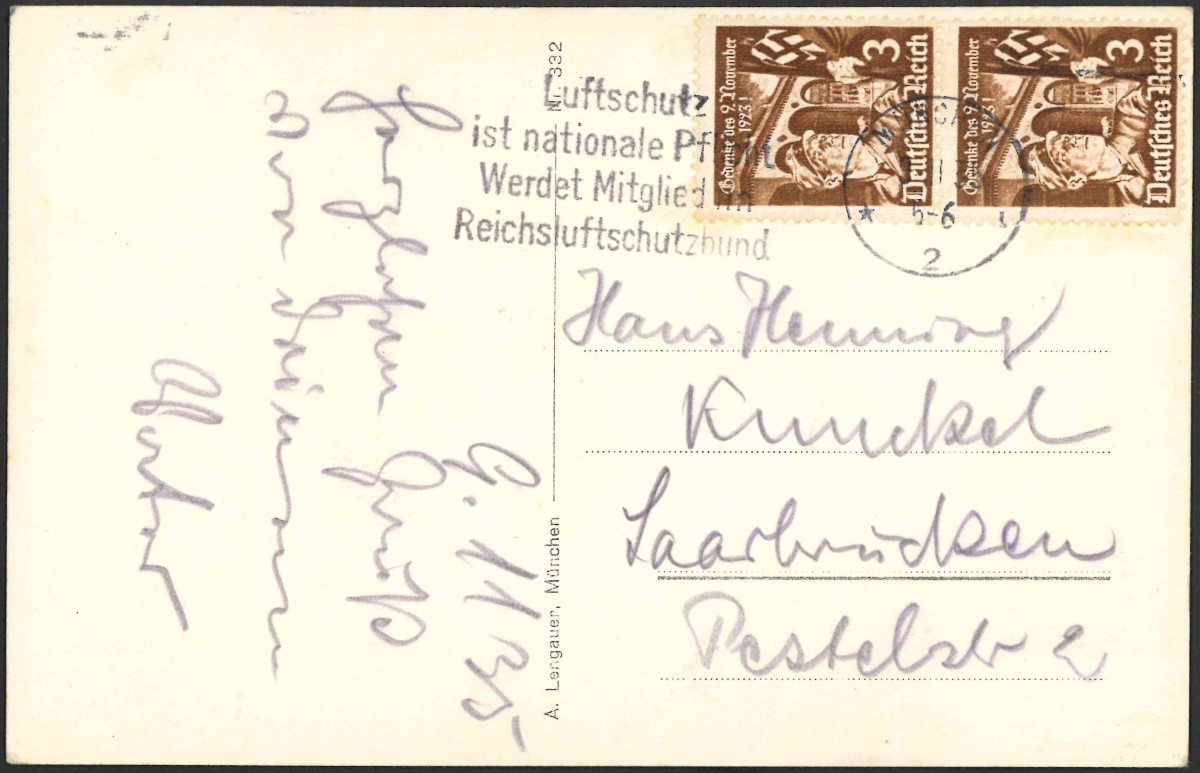 9. 11 35
Herzlichsten Gruß
von Deinem
Vater
A. Lengauer, München
Nr. 332
Luftschutz
ist nationale Pflicht
Werdet Mitglied im
Reichsluftschutzbund
Gedenke des 9. November
1923!
3
Deutsches Reich
Gedenke des 9. November
1923!
3
Deutsches Reich
5-6
2
Hans Henning
Kunckel
Saarbrücken
Pestelstr 2